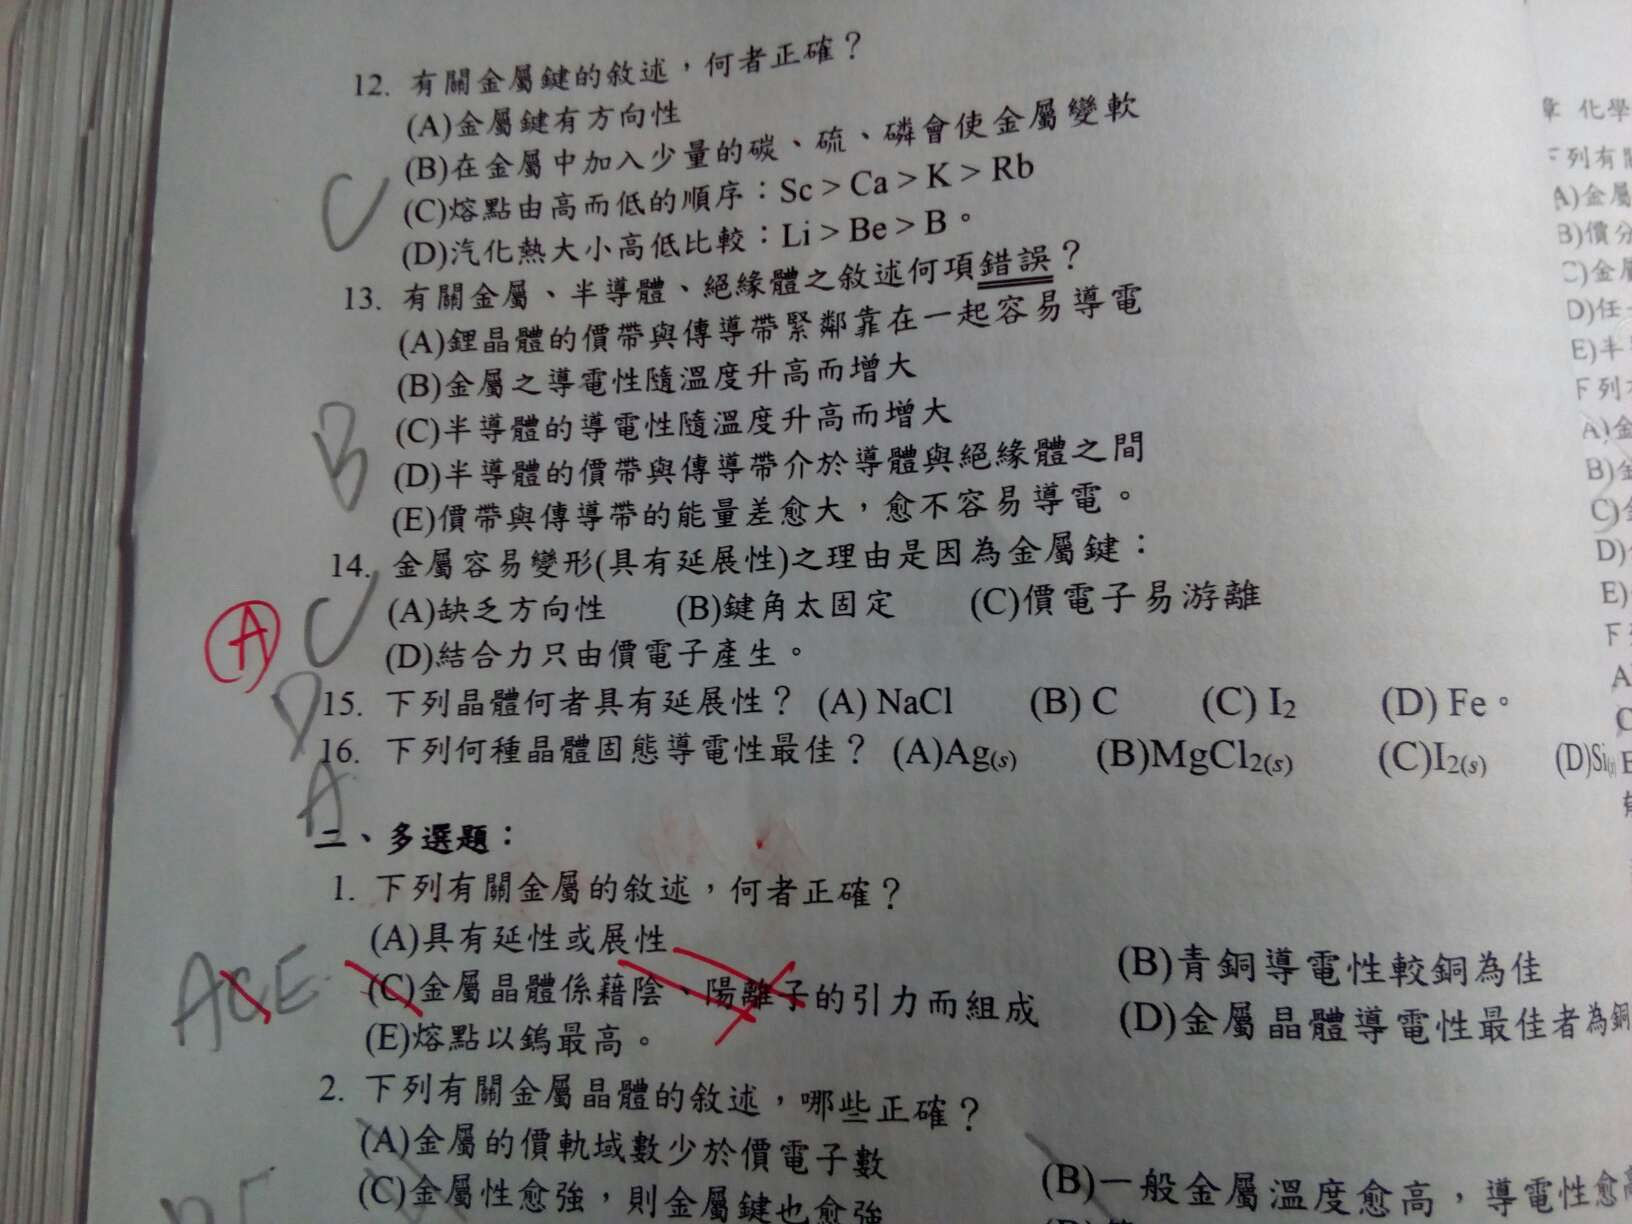 12. 有關金屬鍵的敘述，何者正確？
(A)金屬鍵有方向性
(B)在金屬中加入少量的碳、硫、磷會使金屬變軟
C
(C)熔點由高而低的順序：Sc > Ca > K > Rb
(D)汽化熱大小高低比較：Li > Be > B。
13. 有關金屬、半導體、絕緣體之敘述何項錯誤？
(A)鋰晶體的價帶與傳導帶緊鄰靠在一起容易導電
(B)金屬之導電性隨溫度升高而增大
B
(C)半導體的導電性隨溫度升高而增大
(D)半導體的價帶與傳導帶介於導體與絕緣體之間
(E)價帶與傳導帶的能量差愈大，愈不容易導電。
14. 金屬容易變形(具有延展性)之理由是因為金屬鍵：
A C
(A)缺乏方向性 (B)鍵角太固定 (C)價電子易游離
(D)結合力只由價電子產生。
D
15. 下列晶體何者具有延展性？ (A) NaCl (B) C (C) I2 (D) Fe。
16. 下列何種晶體固態導電性最佳？ (A)Ag(s) (B)MgCl2(s) (C)I2(s) (D)Si(s)
A
二、多選題：
1. 下列有關金屬的敘述，何者正確？
(A)具有延性或展性 (B)青銅導電性較銅為佳
ACE
(C)金屬晶體係藉陰、陽離子的引力而組成 (D)金屬晶體導電性最佳者為銅
(E)熔點以鎢最高。
2. 下列有關金屬晶體的敘述，哪些正確？
(A)金屬的價軌域數少於價電子數 (B)一般金屬溫度愈高，導電性愈
(C)金屬性愈強，則金屬鍵也愈強
章 化學
下列有關
A)金屬
B)價
C)金屬
D)任
E)半
下列
A)金
B)金
C)
D)
E)
下
A
C